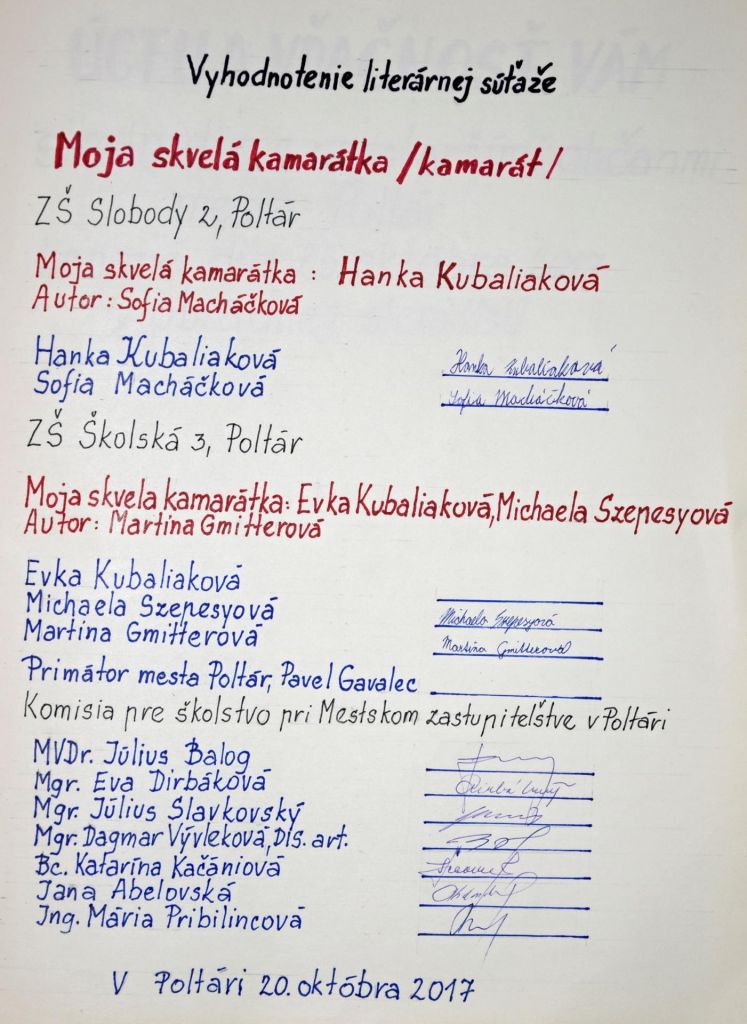 Vyhodnotenie literárnej súťaže
Moja skvelá kamarátka /kamarát/
ZŠ Slobody 2, Poltár
Moja skvelá kamarátka : Hanka Kubaliaková
Autor: Sofia Macháčková
Hanka Kubaliaková Hanka Kubaliaková
Sofia Macháčková Sofia Macháčková
ZŠ Školská 3, Poltár
Moja skvela kamarátka: Evka Kubaliaková, Michaela Szepesyová
Autor: Martina Gmitterová
Evka Kubaliaková
Michaela Szepesyová Michaela Szepesyová
Martina Gmitterová Martina Gmitterová
Primátor mesta Poltár, Pavel Gavalec
Komisia pre školstvo pri Mestskom zastupiteľstve v Poltári
MVDr. Július Balog
Mgr. Eva Dirbáková
Mgr. Július Slavkovský
Mgr. Dagmar Vývleková, Dis. art.
Bc. Katarína Kačániová
Jana Abelovská
Ing. Mária Pribilincová
V Poltári 20. októbra 2017